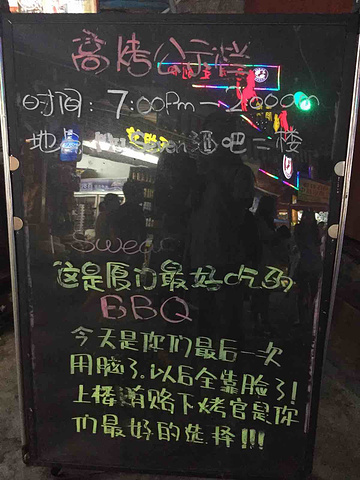 高烤公示栏
时间：7:00Pm — 2:00am
地点 酒吧二楼
I swear
这是厦门最好吃的
BBQ
今天是你们最后一次
用脑了.以后全靠脸了!
上楼贿赂下烤官是你
们最好的选择!!!